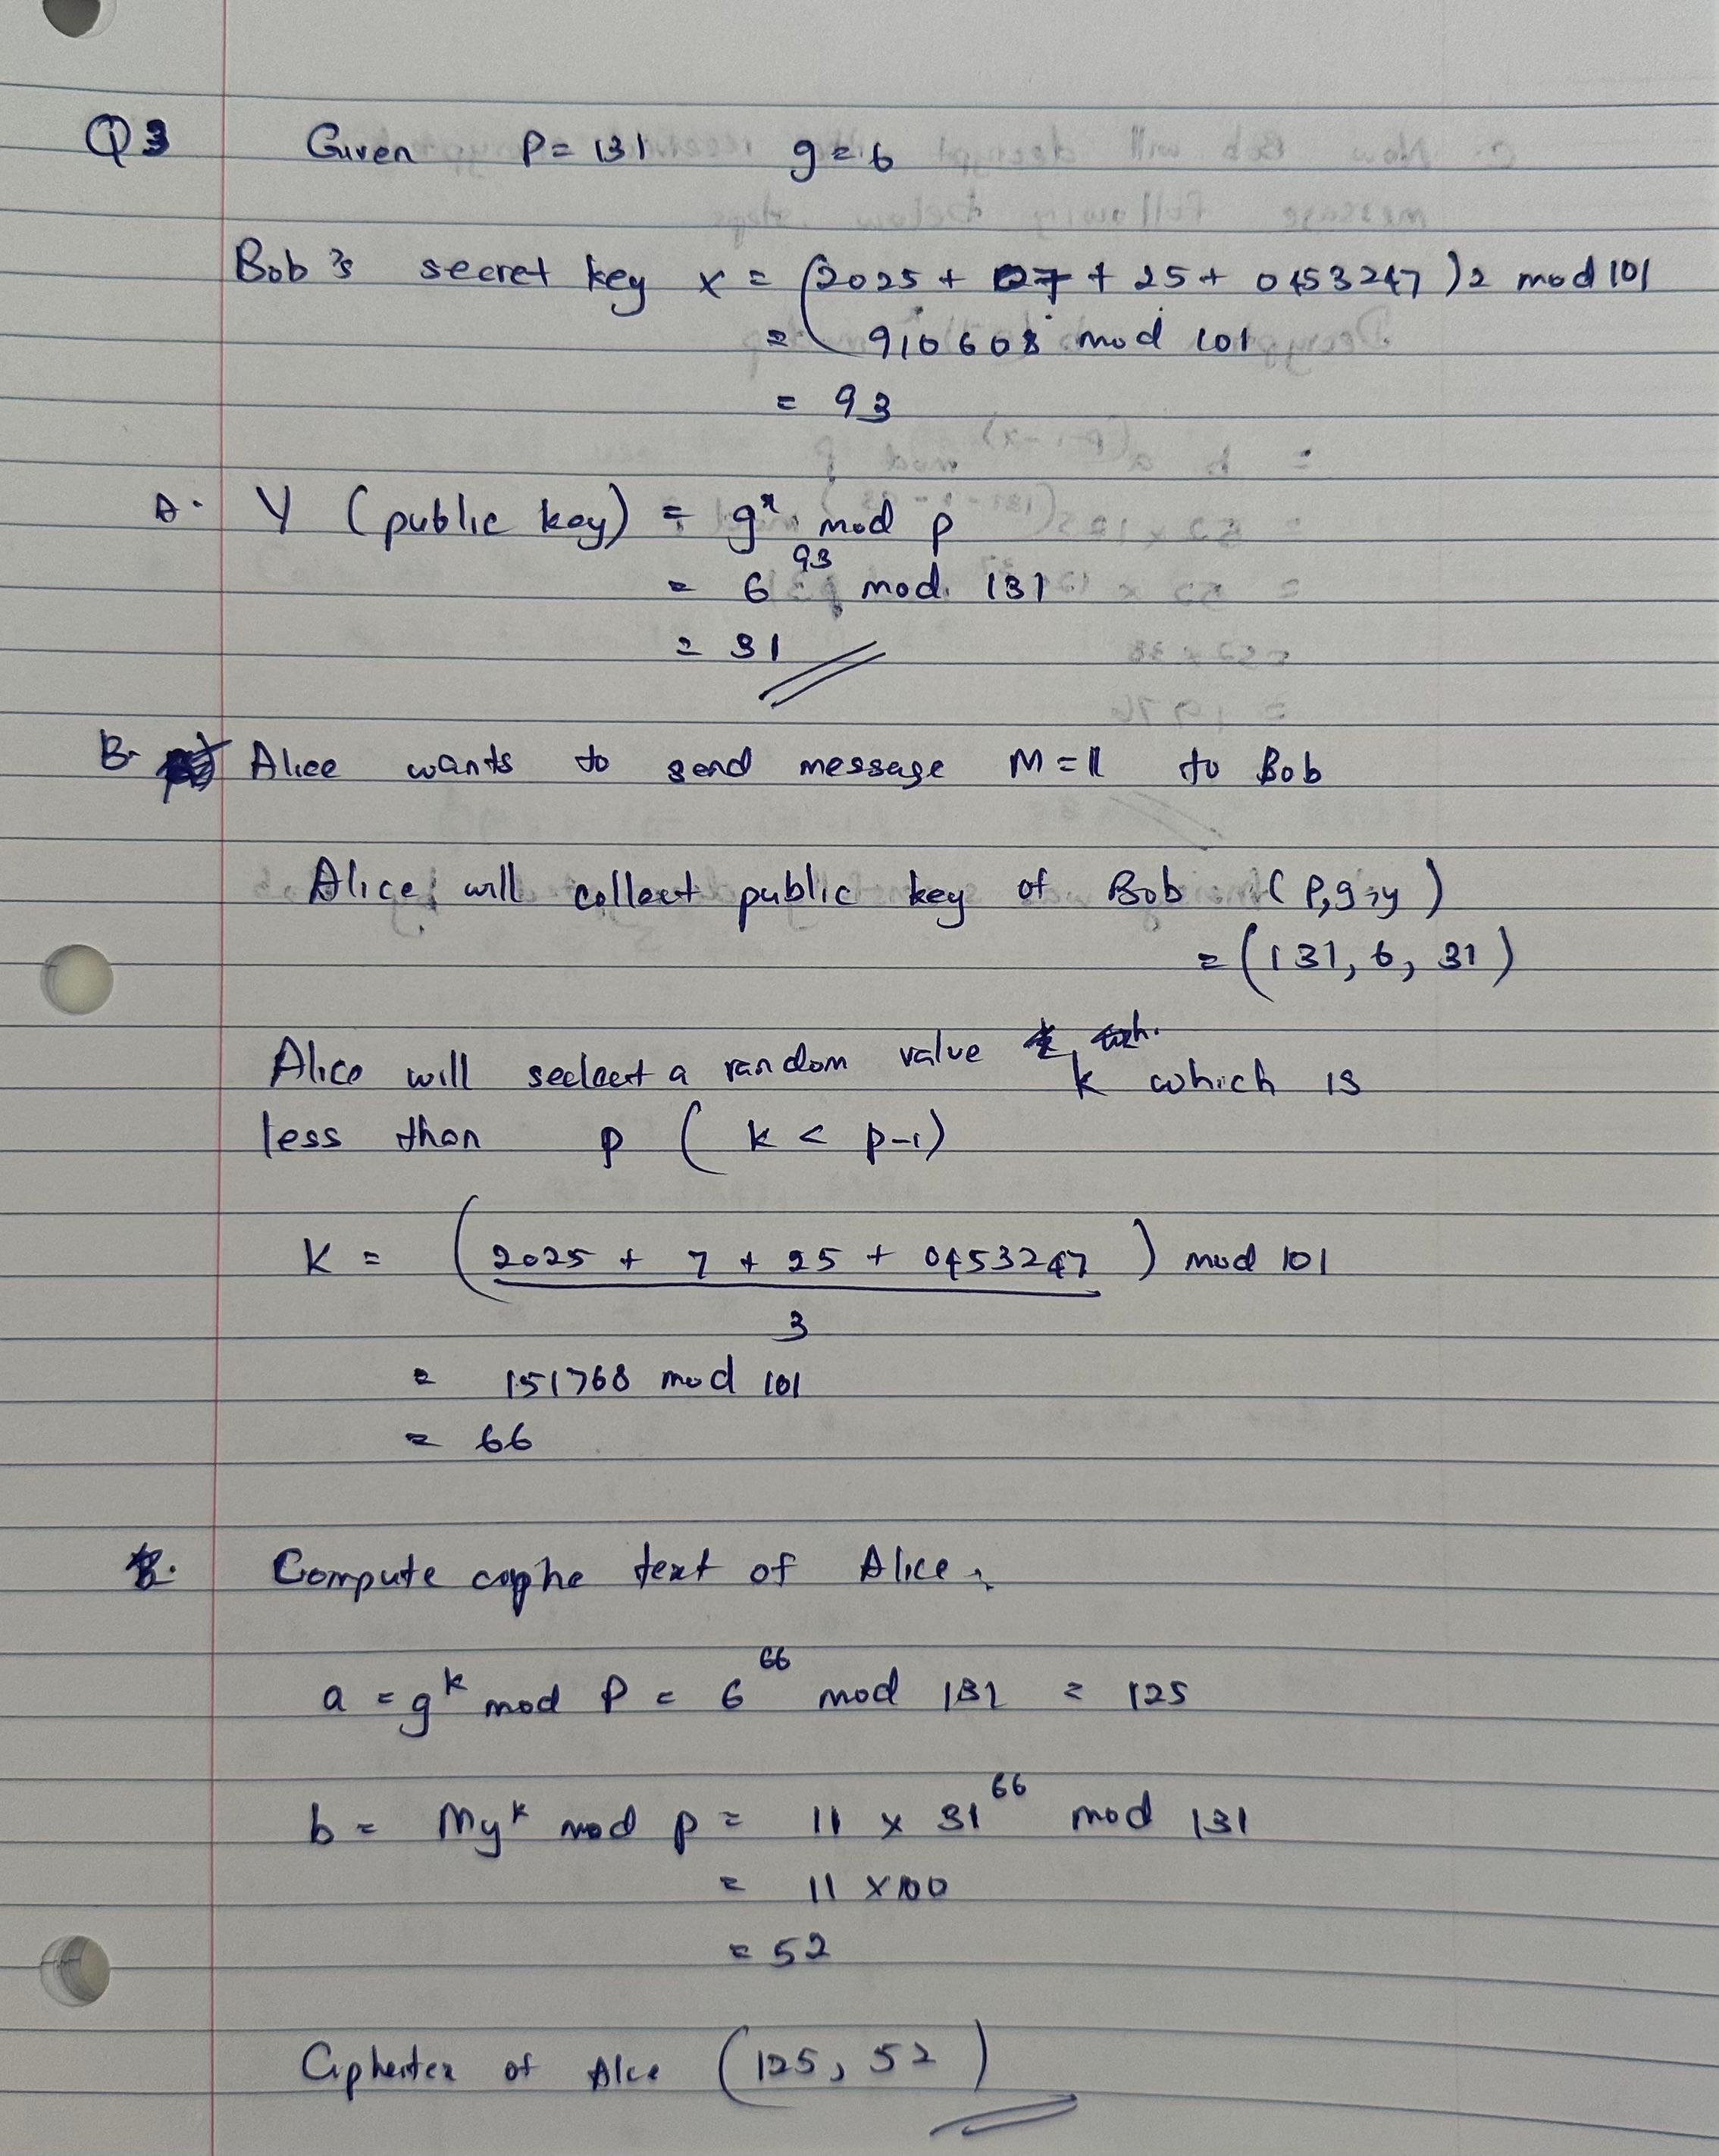 Q3 Given P = 131 g = 6
Bob's secret key x = (2025 + 07 + 25 + 0453247)2 mod 101
= 910608 mod 101
= 93
A. Y (public key) = g^x mod p
= 6^93 mod 131
= 31
B. Alice wants to send message M = 11 to Bob
Alice will collect public key of Bob (P,g,y)
= (131, 6, 31)
Alice will seclect a random value k which is
less than p (k < p-1)
K = (2025 + 7 + 25 + 0453247) mod 101
3
= 151768 mod 101
= 66
Compute cophe text of Alice.
a = g^k mod P = 6^66 mod 131 = 125
b = My^k mod p = 11 x 31^66 mod 131
= 11 x 100
= 52
Ciphertex of Alce (125, 52)